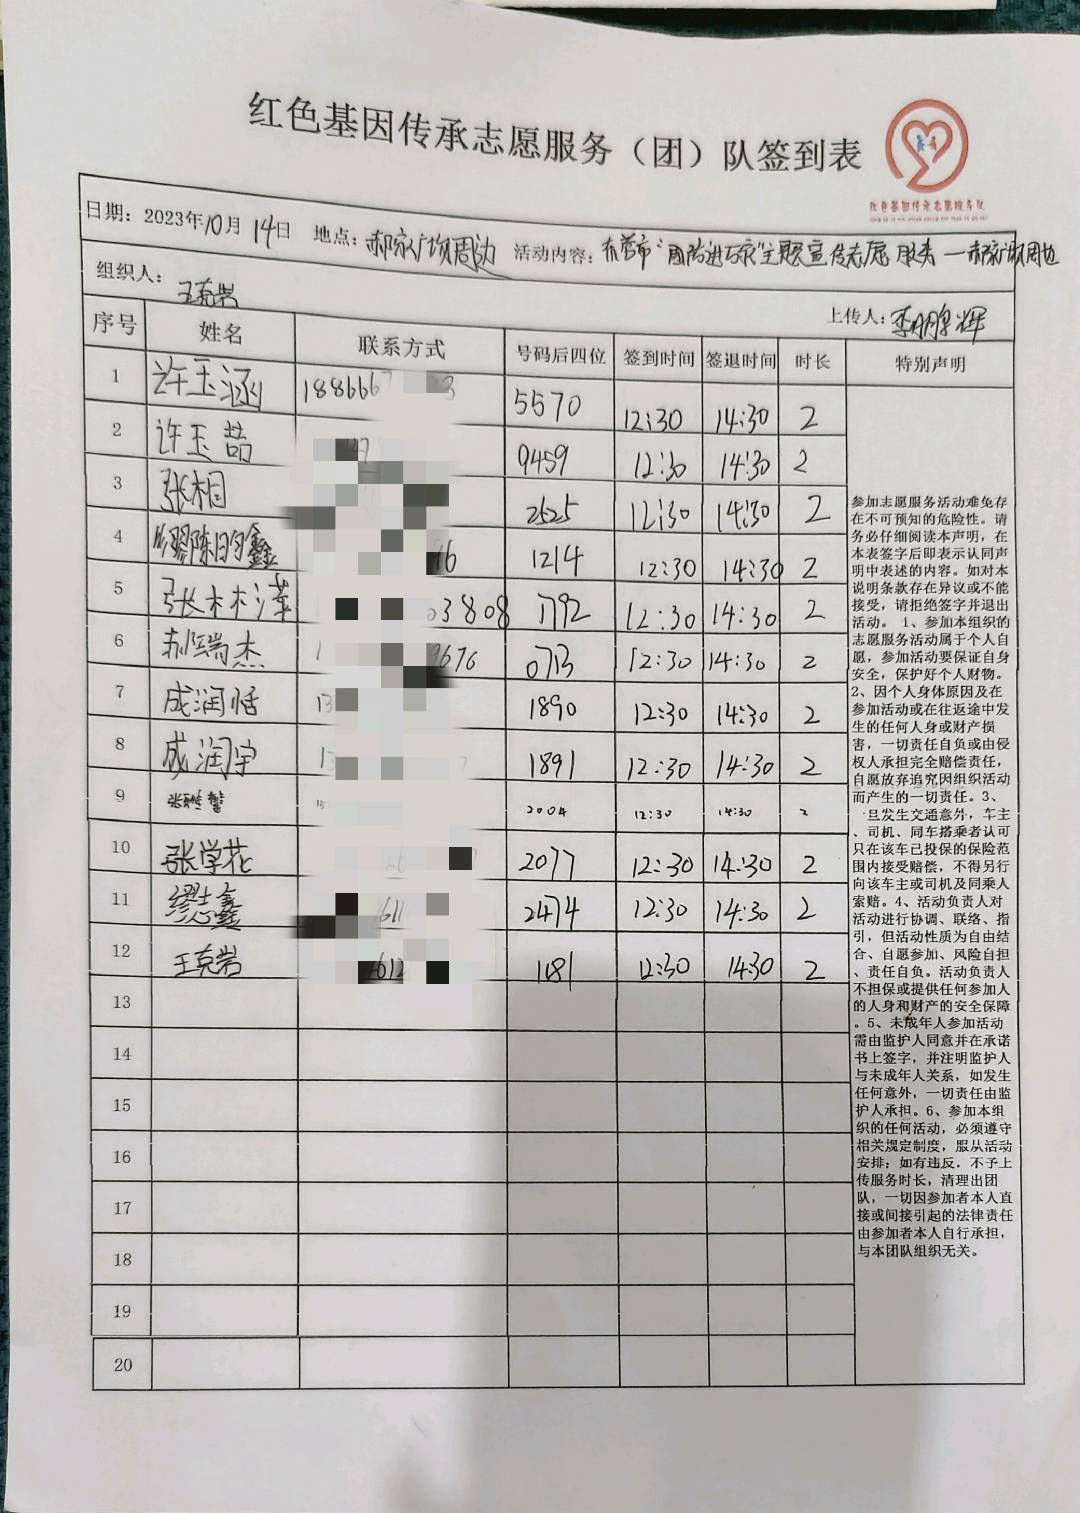 红色基因传承志愿服务（团）队签到表
红色基因传承志愿服务队
日期：2023年10月14日 地点：郝家广场周边 活动内容：东营市"国防进万家"主题宣传志愿服务—郝家广场周边
组织人：王克岩 上传人：李鹏辉
序号 姓名 联系方式 号码后四位 签到时间 签退时间 时长 特别声明
1 许玉涵 1886667 5570 12:30 14:30 2
2 许玉喆 9459 12:30 14:30 2
3 张相 2525 12:30 14:30 2
4 1214 12:30 14:30 2
5 03808 1792 12:30 14:30 2
6 郝瑞杰 9676 0713 12:30 14:30 2
7 成润恬 13 1890 12:30 14:30 2
8 成润宇 1891 12:30 14:30 2
9 2004 12:30 14:30 2
10 张学花 2077 12:30 14:30 2
11 缪志鑫 611 2474 12:30 14:30 2
12 王克岩 612 1181 12:30 14:30 2
13
14
15
16
17
18
19
20
参加志愿服务活动难免存
在不可预知的危险性。请
务必仔细阅读本声明，在
本表签字后即表示认同声
明中表述的内容。如对本
说明条款存在异议或不能
接受，请拒绝签字并退出
活动。 1、参加本组织的
志愿服务活动属于个人自
愿，参加活动要保证自身
安全，保护好个人财物。
2、因个人身体原因及在
参加活动或在往返途中发
生的任何人身或财产损
害，一切责任自负或由侵
权人承担完全赔偿责任，
自愿放弃追究因组织活动
而产生的一切责任。3、
一旦发生交通意外，车主
、司机、同车搭乘者认可
只在该车已投保的保险范
围内接受赔偿，不得另行
向该车主或司机及同乘人
索赔。4、活动负责人对
活动进行协调、联络、指
引，但活动性质为自由结
合、自愿参加、风险自担
、责任自负。活动负责人
不担保或提供任何参加人
的人身和财产的安全保障
。5、未成年人参加活动
需由监护人同意并在承诺
书上签字，并注明监护人
与未成年人关系，如发生
任何意外，一切责任由监
护人承担。6、参加本组
织的任何活动，必须遵守
相关规定制度，服从活动
安排；如有违反，不予上
传服务时长，清理出团
队，一切因参加者本人直
接或间接引起的法律责任
由参加者本人自行承担，
与本团队组织无关。